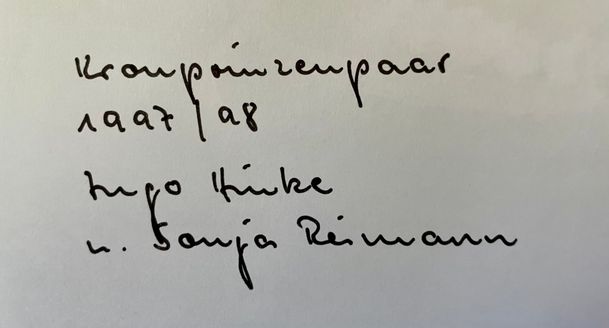 Kronprinzenpaar
1997/98
Ingo Hinke
u. Sonja Reimann